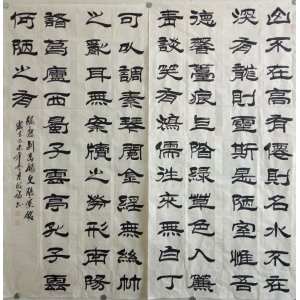 山不在高有僊則名水不在
深有龍則靈斯是陋室惟吾
德馨苔痕上階綠草色入簾
青談笑有鴻儒往來無白丁
可以調素琴閱金經無絲竹
之亂耳無案牘之勞形南陽
諸葛廬西蜀子雲亭孔子雲
何陋之有
錄唐劉禹錫陋室銘
乙未年